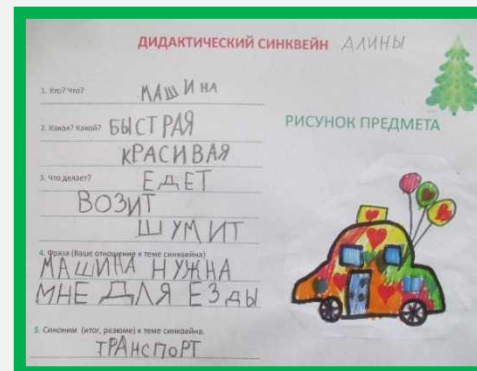 ДИДАКТИЧЕСКИЙ СИНКВЕЙН АЛИНЫ
1. Кто? Что? МАШИНА
2. Какая? Какой? БЫСТРАЯ
КРАСИВАЯ
РИСУНОК ПРЕДМЕТА
3. Что делает? ЕДЕТ
ВОЗИТ
ШУМИТ
4. Фраза (Ваше отношение к теме синквейна)
МАШИНА НУЖНА
МНЕ ДЛЯ ЕЗДЫ
5. Синоним (итог, резюме) к теме синквейна.
ТРАНСПОРТ